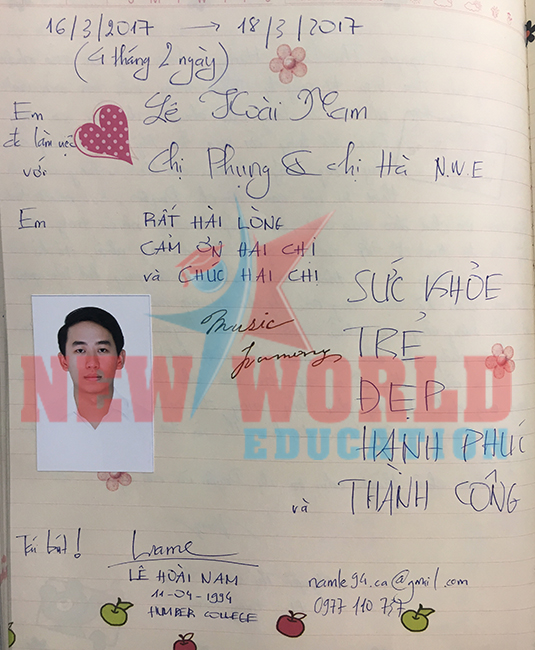 16/3/2017 → 18/3/2017
(4 tháng 2 ngày)
Em Lê Hoài Nam
đc làm việc
với Chị Phụng & chị Hà N.W.E
Em RẤT HÀI LÒNG
CẢM ƠN HAI CHỊ
và CHÚC HAI CHỊ
SỨC KHỎE
TRẺ
ĐẸP
HẠNH PHÚC
và THÀNH CÔNG
Music
NEW WORLD
EDUCATION
Tái bút!
LÊ HOÀI NAM
11-04-1994
HUMBER COLLEGE
namle94.ca@gmail.com
0977 110 737